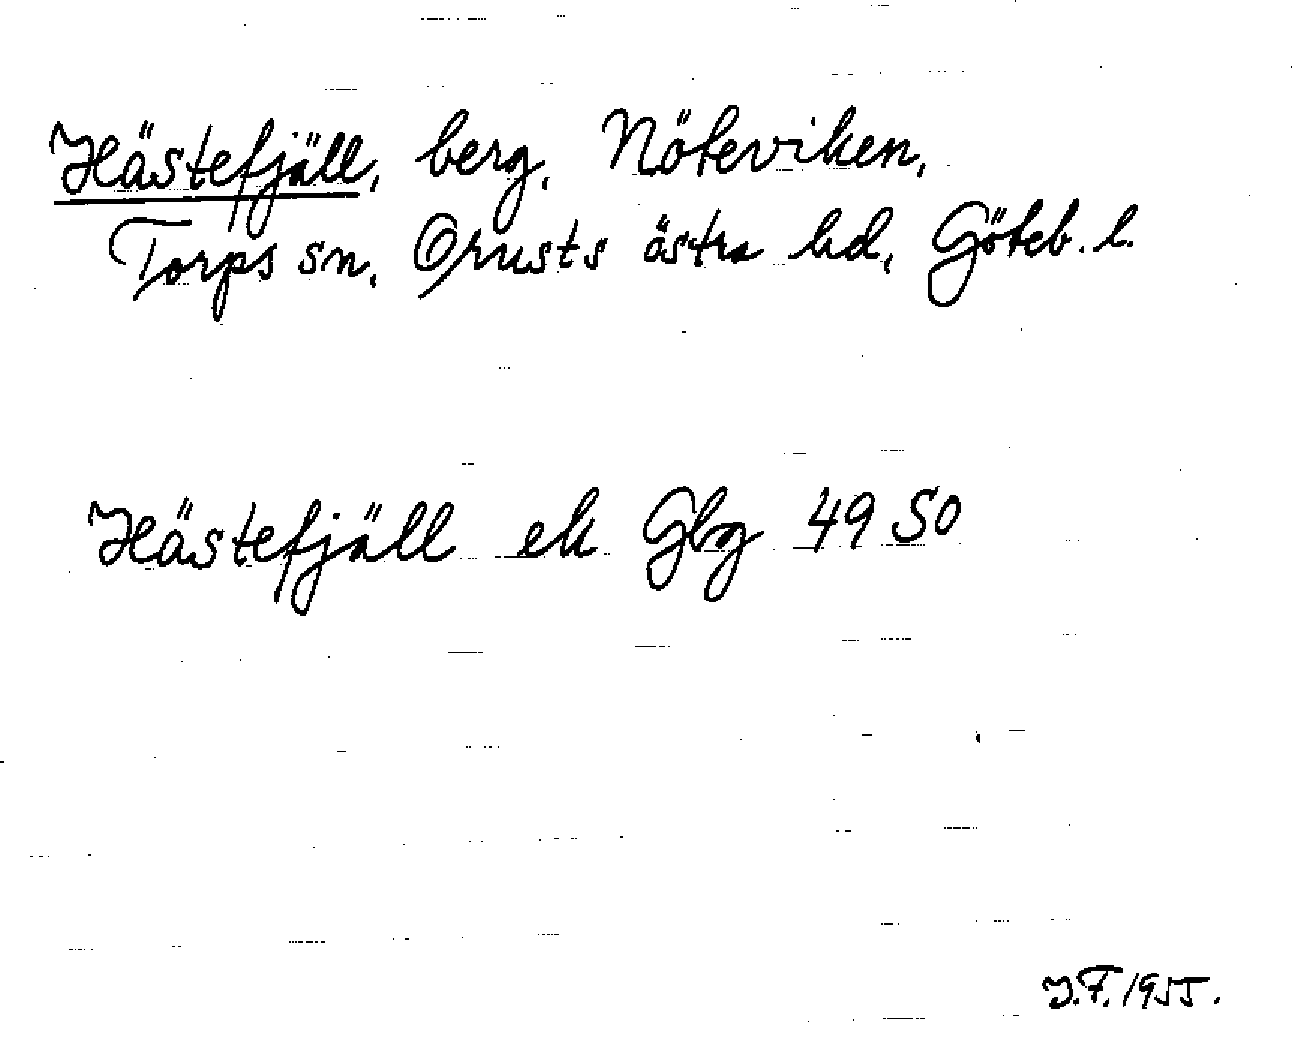 Hästefjäll, berg, Nöteviken,
Torps sn, Orusts östra hd, Göteb. l.
Hästefjäll ek Gbg 49 SO
J.F. 1955.